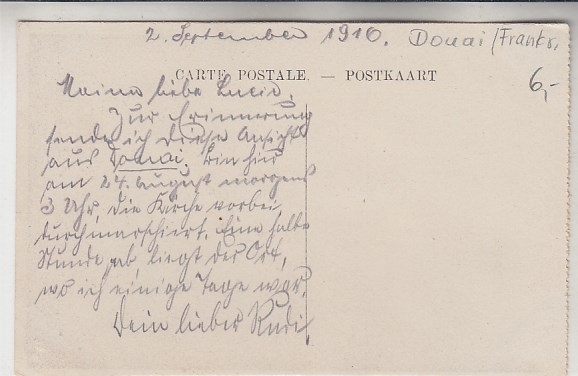 2. September 1916. Douai/Frankr.
6,-
CARTE POSTALE. — POSTKAART
Meine liebe Lucie.
Zur Erinnerung
sende ich diese Ansicht
aus Douai. Bin hier
am 24. August morgens
3 Uhr, die Kirche vorbei
durchmarschiert. Eine halbe
Stunde ab, liegt der Ort,
wo ich einige Tage war.
Dein lieber Rudi,